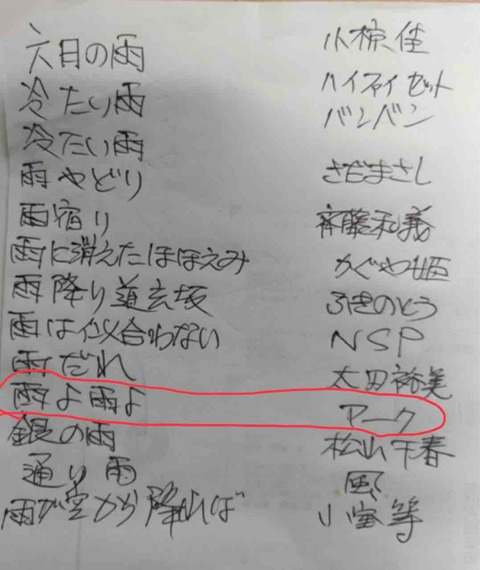 六月の雨 小椋佳
冷たい雨 ハイファイセット
冷たい雨 バンバン
雨やどり さだまさし
雨宿り 斉藤和義
雨に消えたほほえみ かぐや姫
雨降り道玄坂 ふきのとう
雨は似合わない NSP
雨だれ 太田裕美
雨よ雨よ アーク
銀の雨 松山千春
通り雨 風
雨が空から降れば 小室等